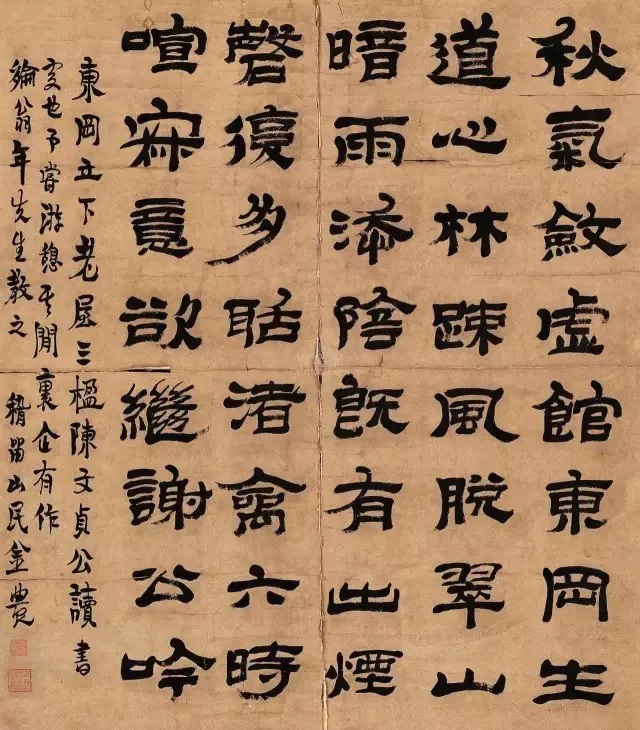 秋氣斂虛館東岡生
道心林踈風脫翠山
暗雨添陰既有出煙
磬復多聒渚禽六時
喧寂意欲繼謝公吟
東岡丘下老屋三楹陳文貞公讀書
處也予嘗游憩其間褱企有作
綸翁年先生教之 稽留山民金農